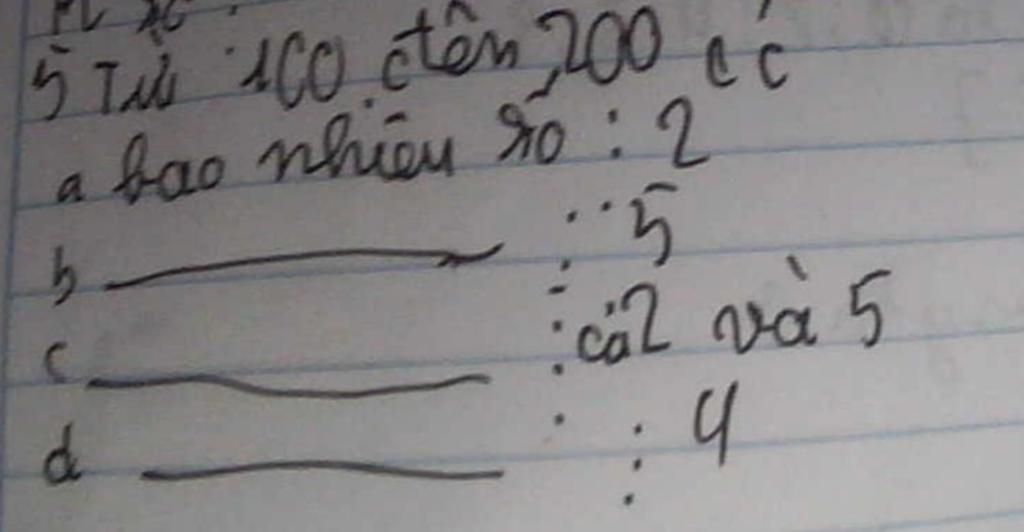 5 Từ 100 đến 200 có
a bao nhiêu số : 2
b ⋮ 5
c ⋮ cả 2 và 5
d ⋮ 4